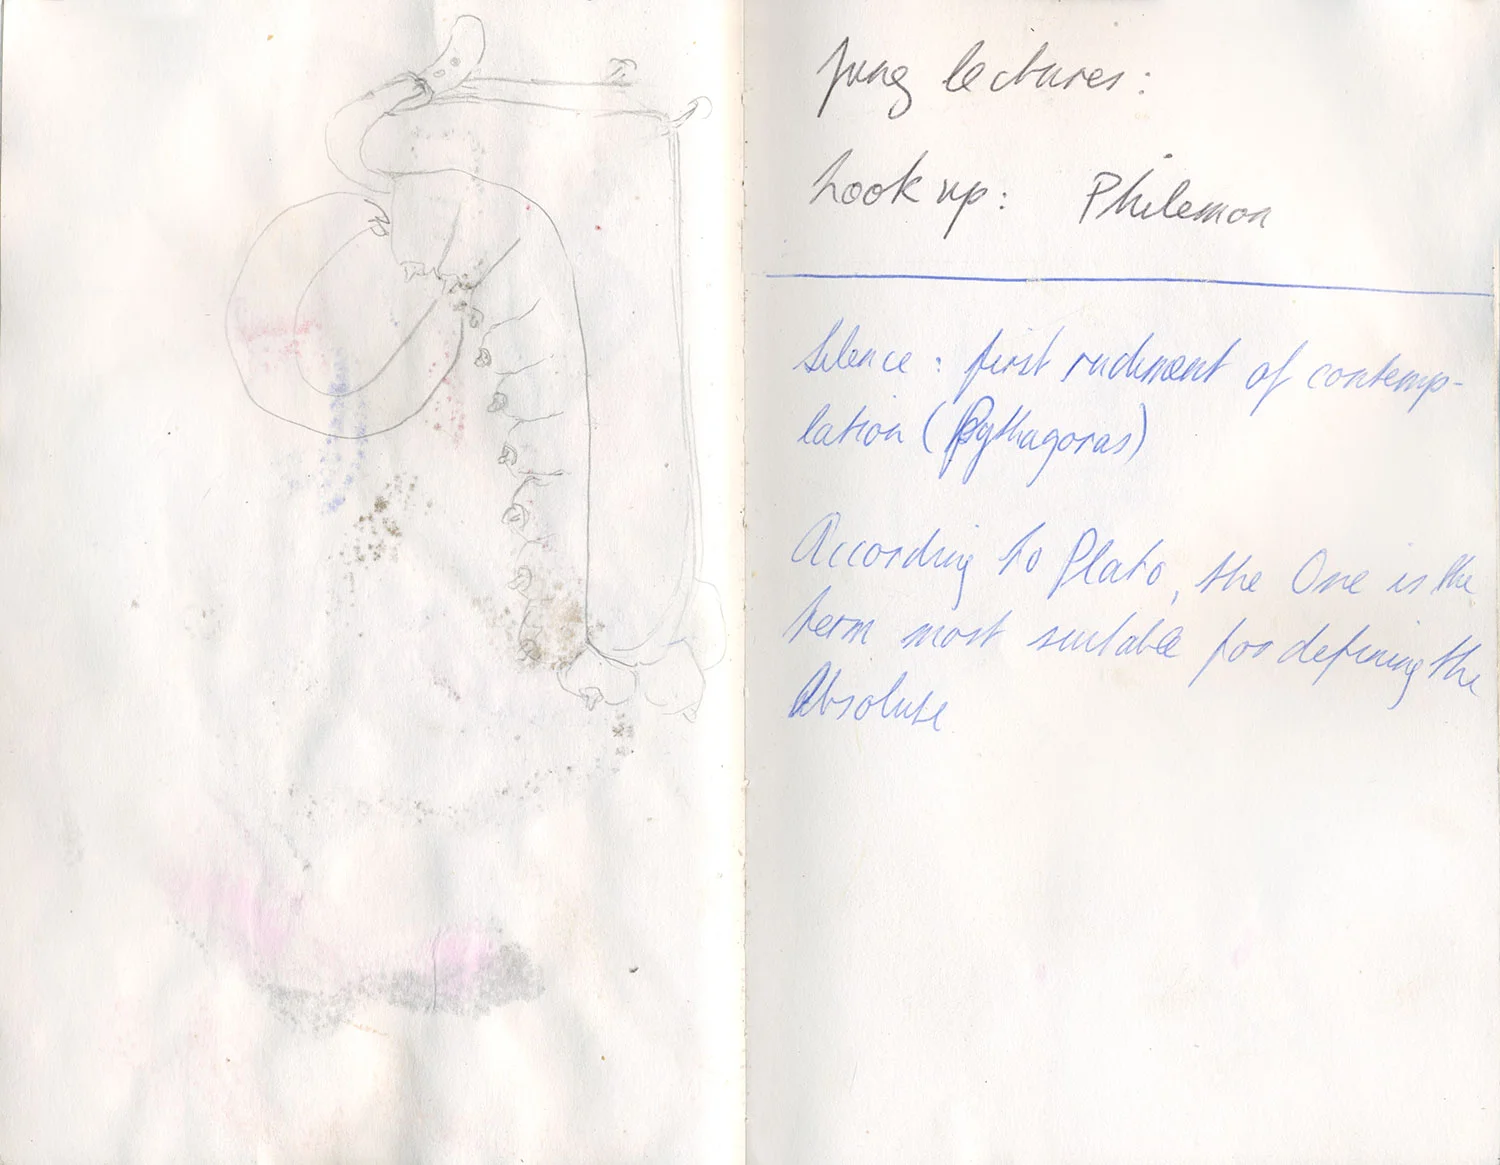 Jung lectures:
look up: Philemon
Silence: first rudiment of contemp-
lation (Pythagoras)
According to Plato, the One is the
term most suitable for defining the
Absolute